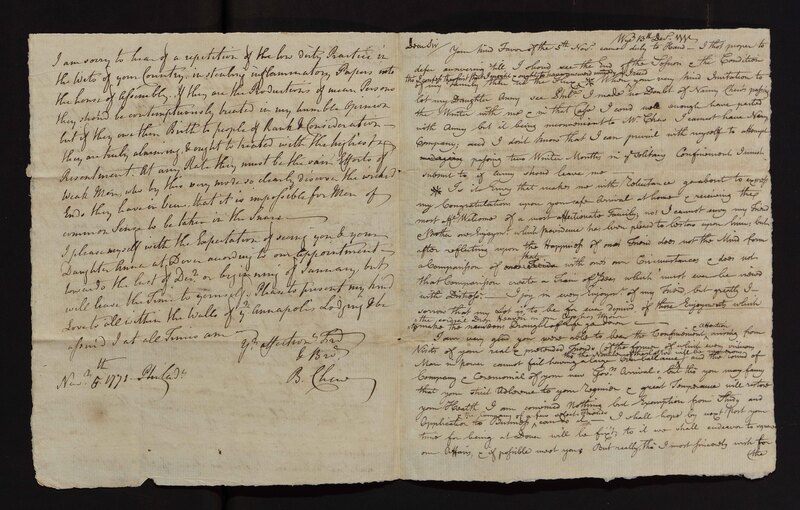 I am sorry to hear of a repetition of the low dirty Practice in
the Wits of your Country, in sticking inflammatory Papers into
the house of Assembly. if they are the Productions of mean Persons
they should be contemptuously treated in my humble Opinion
but if they owe their Birth to people of Rank & Consideration
they are truly alarming & ought to be treated with the highest
Resentment. At any Rate they must be the vain Efforts of
Weak Men, who by this very mode so clearly discover the wicked
Ends they have in view that it is impossible for Men of
common Sense to be taken in the Snare
I please myself with the Expectation of seeing you & your
Daughter Anna at Dover according to our Appointment
towards the last of Decr. or beginning of January, but
will leave the Time to yourself. Please to present my kind
Love to all within the Walls of yr. Annapolis Lodging & be
assured I at all Times am
Yr. affectionate Frd.
& Bror.
B. Chew
Novr. 5th 1771. Philada.
Dear Sir
Your kind Favor of the 5th Novr. came duly to Hand — I thot proper to
defer answering till I should see the End of the Session & the Condition
of my Family
your very kind Invitation to
let my Daughter Anny see Phila. I made no Doubt of Nancy Chew's passing
the Winter with me & in that Case I could well enough have parted
with Anny but it being inconvenient to Mrs. Chew I cannot have Nancy's
Company; and I don't know that I can prevail with myself to attempt
passing two Winter Months in ye solitary Confinement I must
submit to if Anny should leave me
It is Envy that makes me with Reluctance go about to express
my Congratulation upon your safe Arrival at home & receiving the
most Welcome of a most affectionate Family, no I cannot envy my Friend
& Brother one Enjoymt. which providence has been pleased to bestow upon him; but
after reflecting upon the Happiness of one's Friend does not the Mind form
a Comparison of that with one's own Circumstances & does not
that Comparison create a Train of Ideas which must ever be viewed
with Distress — I joy in every Enjoymt. of my Friend but greatly I
sorrow that my Lot is to be for ever deprived of those Enjoyments which
I am very glad you were able to bear the Confinement, arising from
Visits of your real & pretended Friends
Men in power cannot fail having
and the round of
Company & Ceremonial of your new Govrs. Arrival, but tho you may fancy
that your strict Adherence to your Regimen & great Temperance will restore
your Health I am convinced Nothing but Exemption from Study and
Application to Business can do it — I shall hope by next Post your
time for being at Dover will be fix'd; to it we shall endeavor to square
our Affairs, & if possible meet you. But really, tho I most sincerely wish for
(the